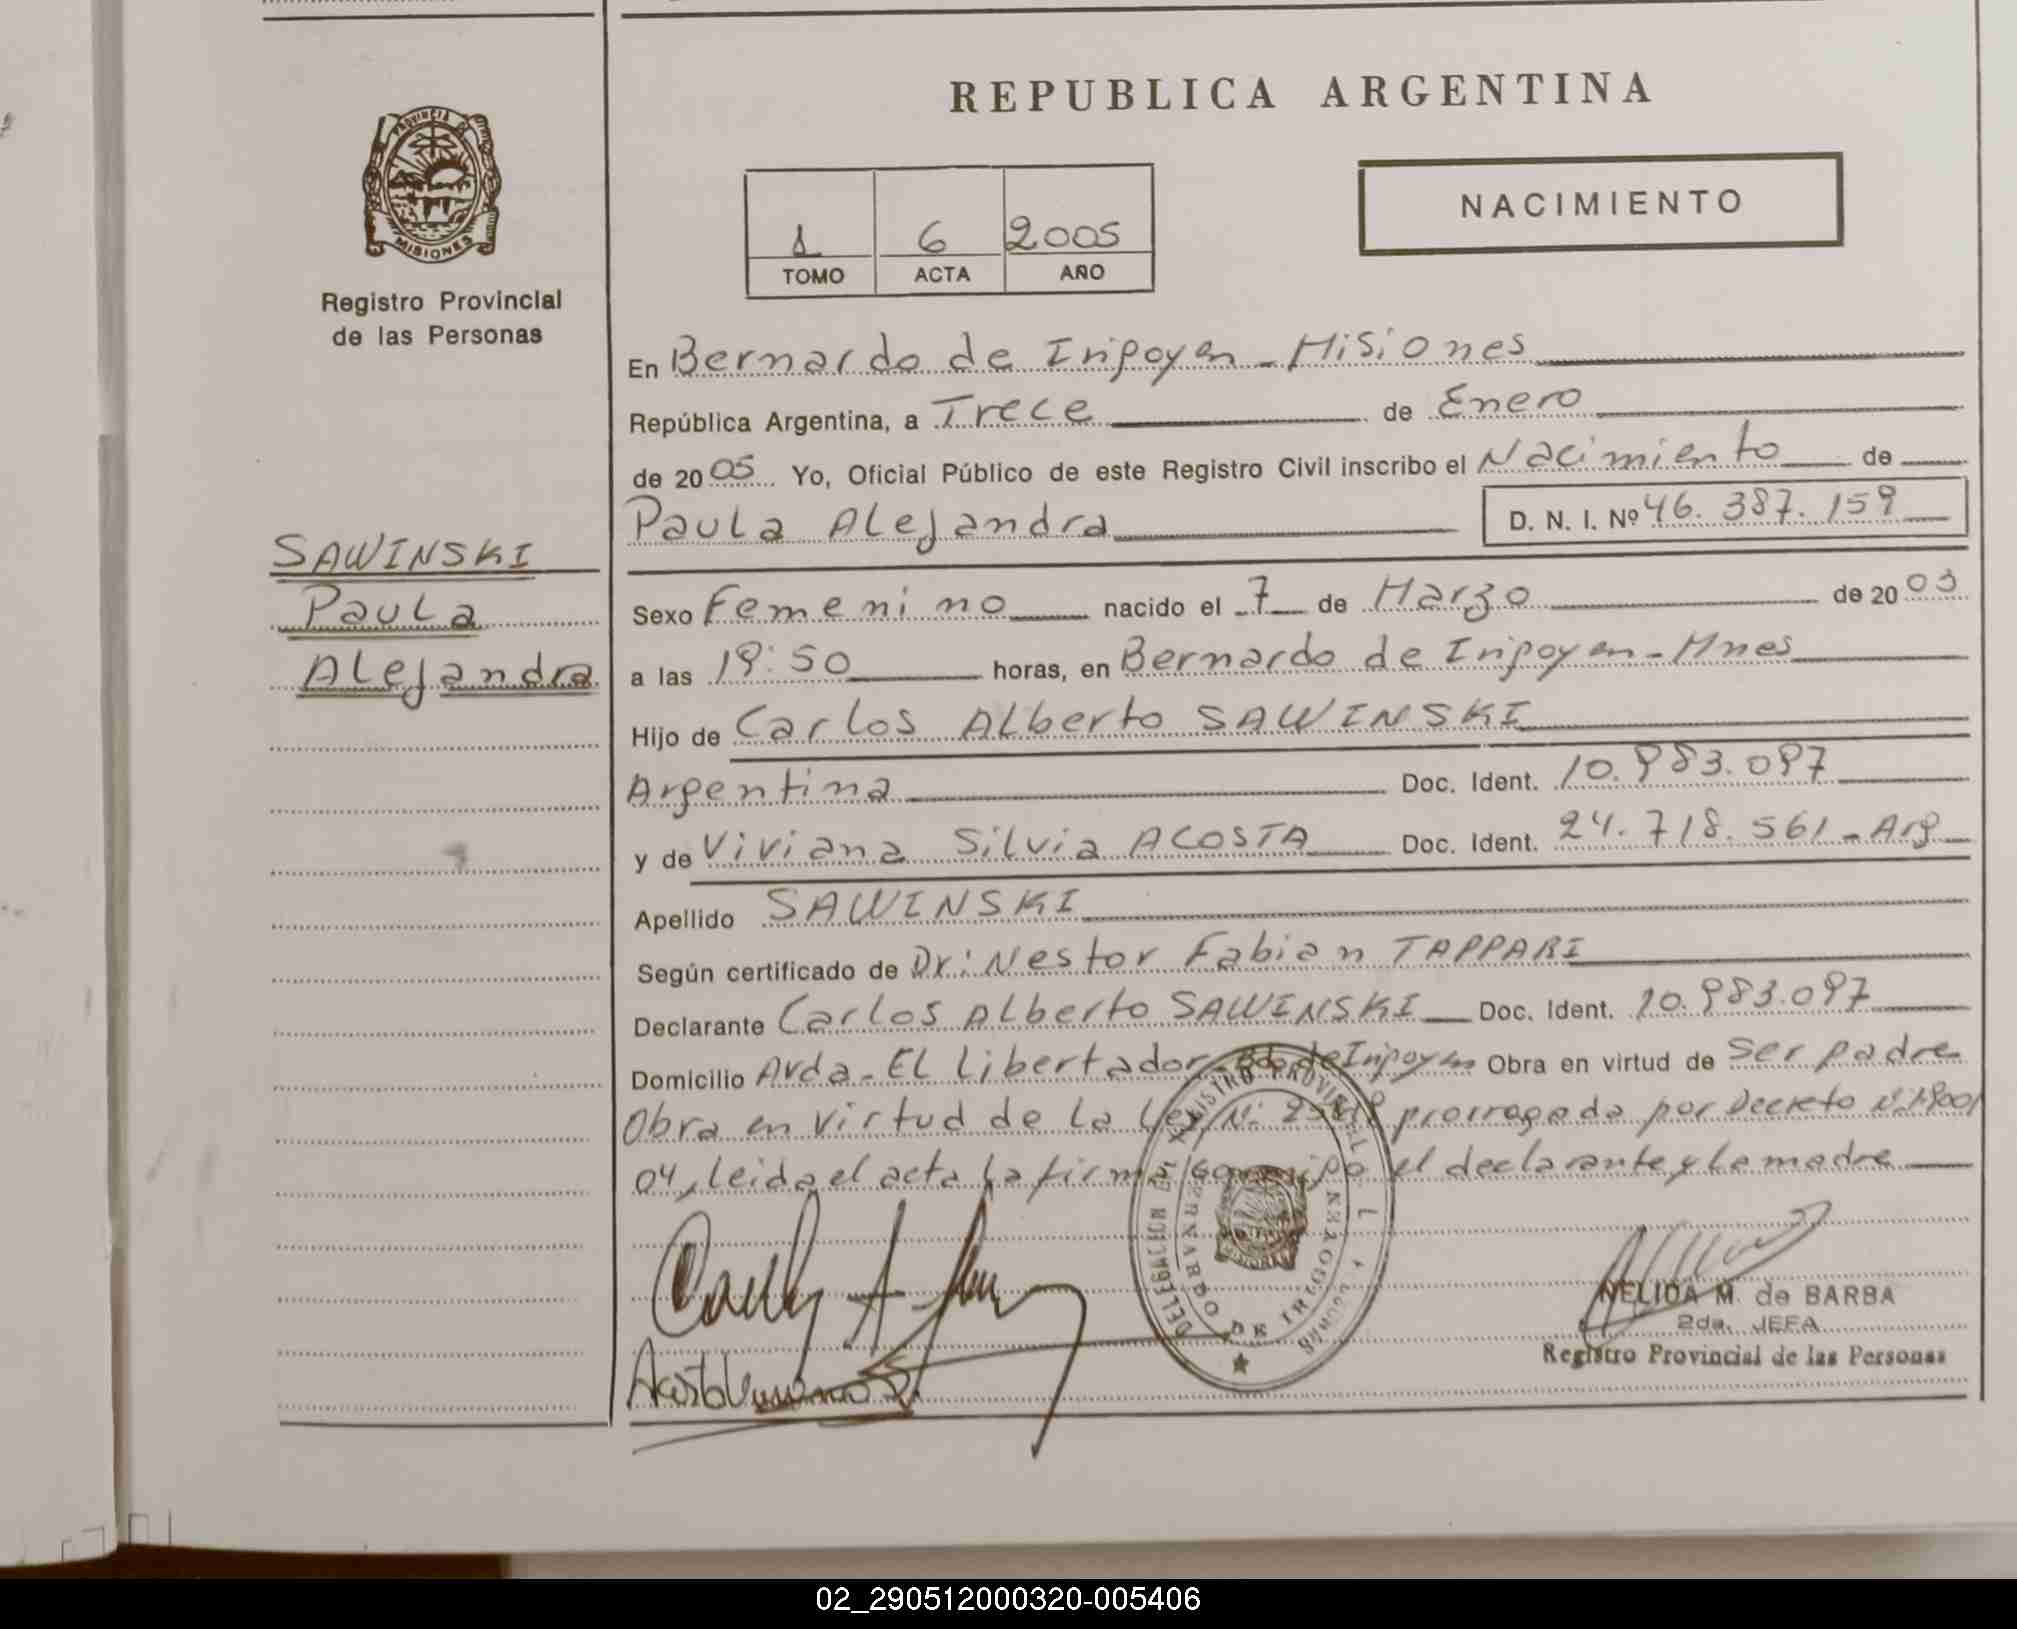 REPUBLICA ARGENTINA
PROVINCIA DE
MISIONES
Registro Provincial
de las Personas
1 6 2005
TOMO ACTA AÑO
NACIMIENTO
SAWINSKI
Paula
Alejandra
En Bernardo de Irigoyen - Misiones
República Argentina, a Trece de Enero
de 2005 Yo, Oficial Público de este Registro Civil inscribo el Nacimiento de
Paula Alejandra D. N. I. Nº 46.387.159
Sexo Femenino nacido el 7 de Marzo de 2003
a las 19:50 horas, en Bernardo de Irigoyen - Mnes
Hijo de Carlos Alberto SAWINSKI
Argentina Doc. Ident. 10.983.097
y de Viviana Silvia ACOSTA Doc. Ident. 24.718.561 - Arg
Apellido SAWINSKI
Según certificado de Dr: Nestor Fabian TAPPARI
Declarante Carlos Alberto SAWINSKI Doc. Ident. 10.983.097
Domicilio Avda - El Libertador - Bdo de Irigoyen Obra en virtud de ser padre
Obra en virtud de la Ley Nº prorrogada por Decreto
04, leida el acta la firman conmigo el declarante y la madre
DELEGACION DEL REGISTRO PROVINCIAL
BERNARDO DE IRIGOYEN
NELIDA M. de BARBA
2da. JEFA
Registro Provincial de las Personas
02_290512000320-005406